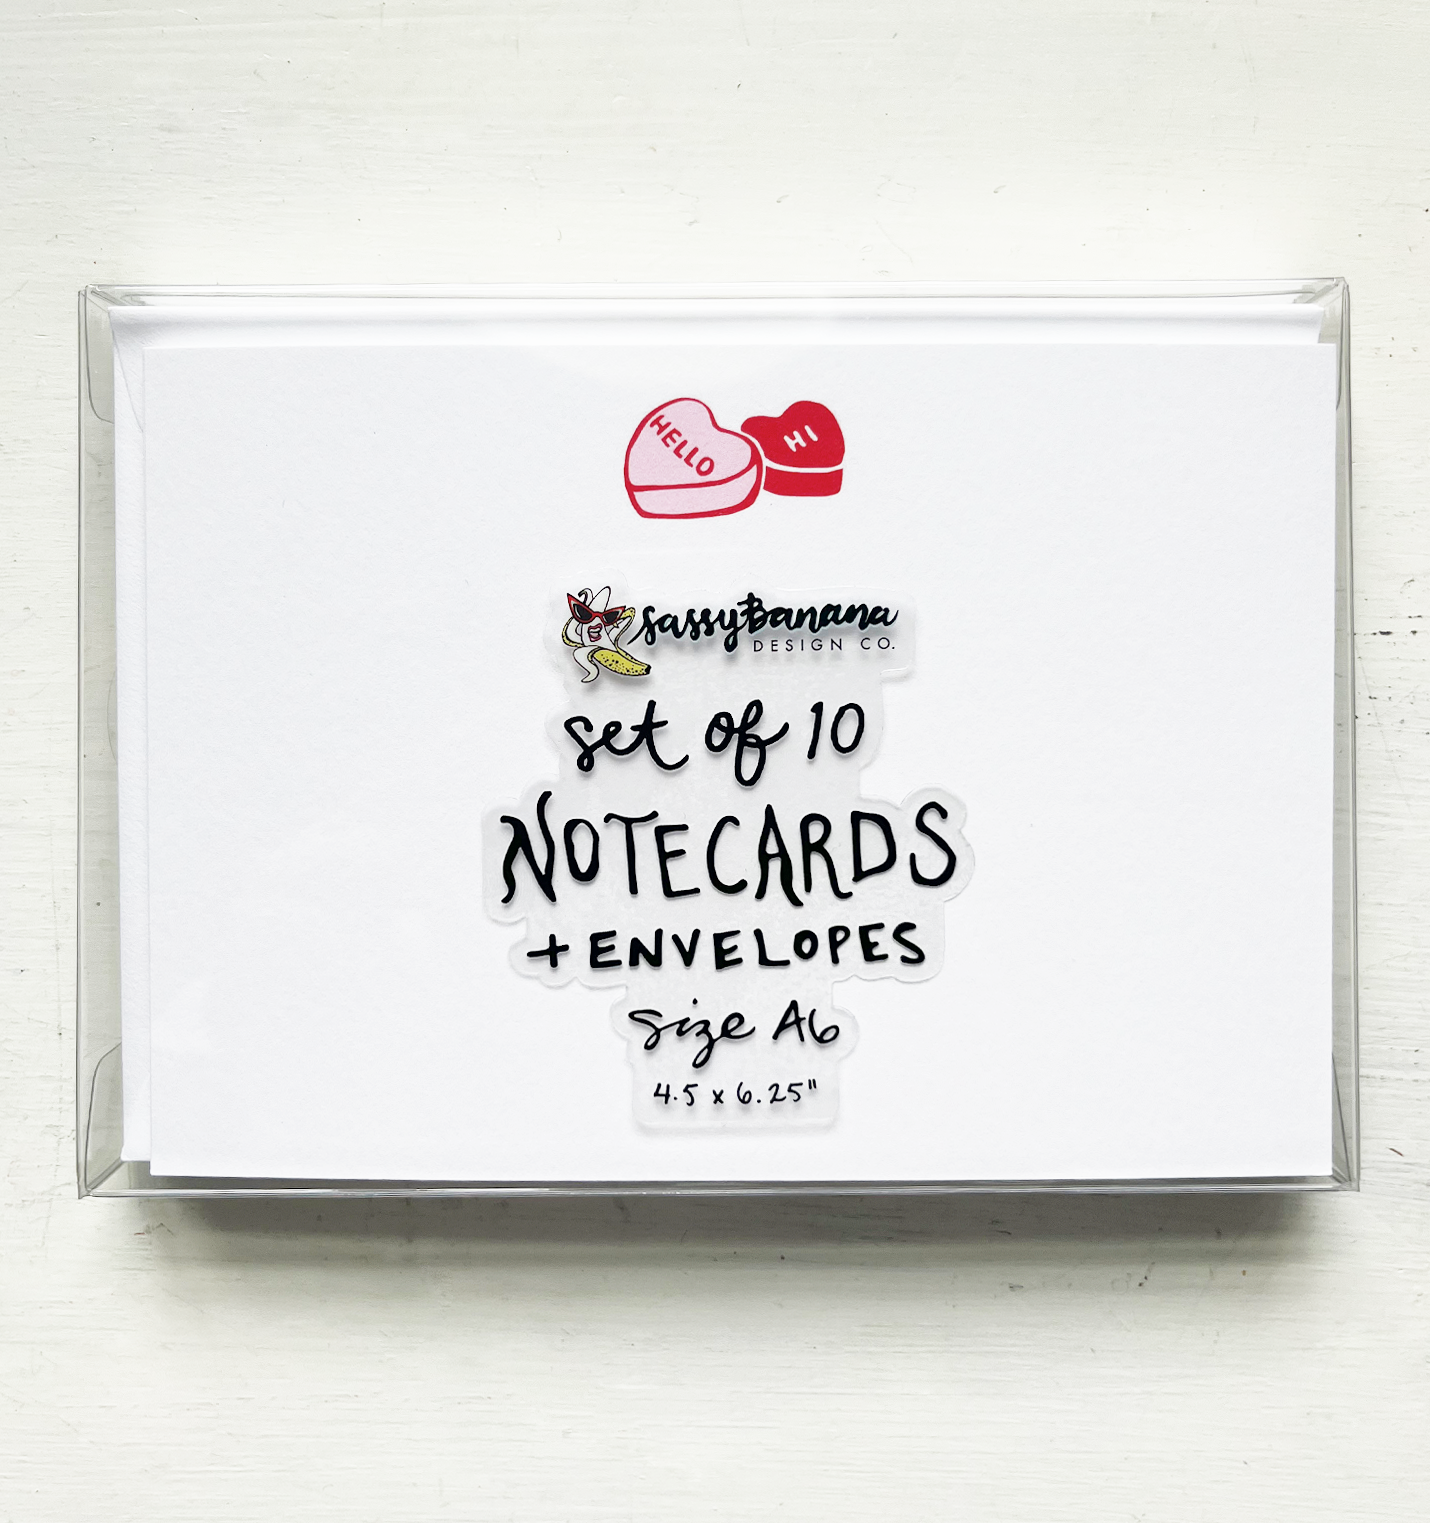 HELLO
HI
sassyBanana
DESIGN CO.
set of 10
NOTECARDS
+ ENVELOPES
size A6
4.5 x 6.25"